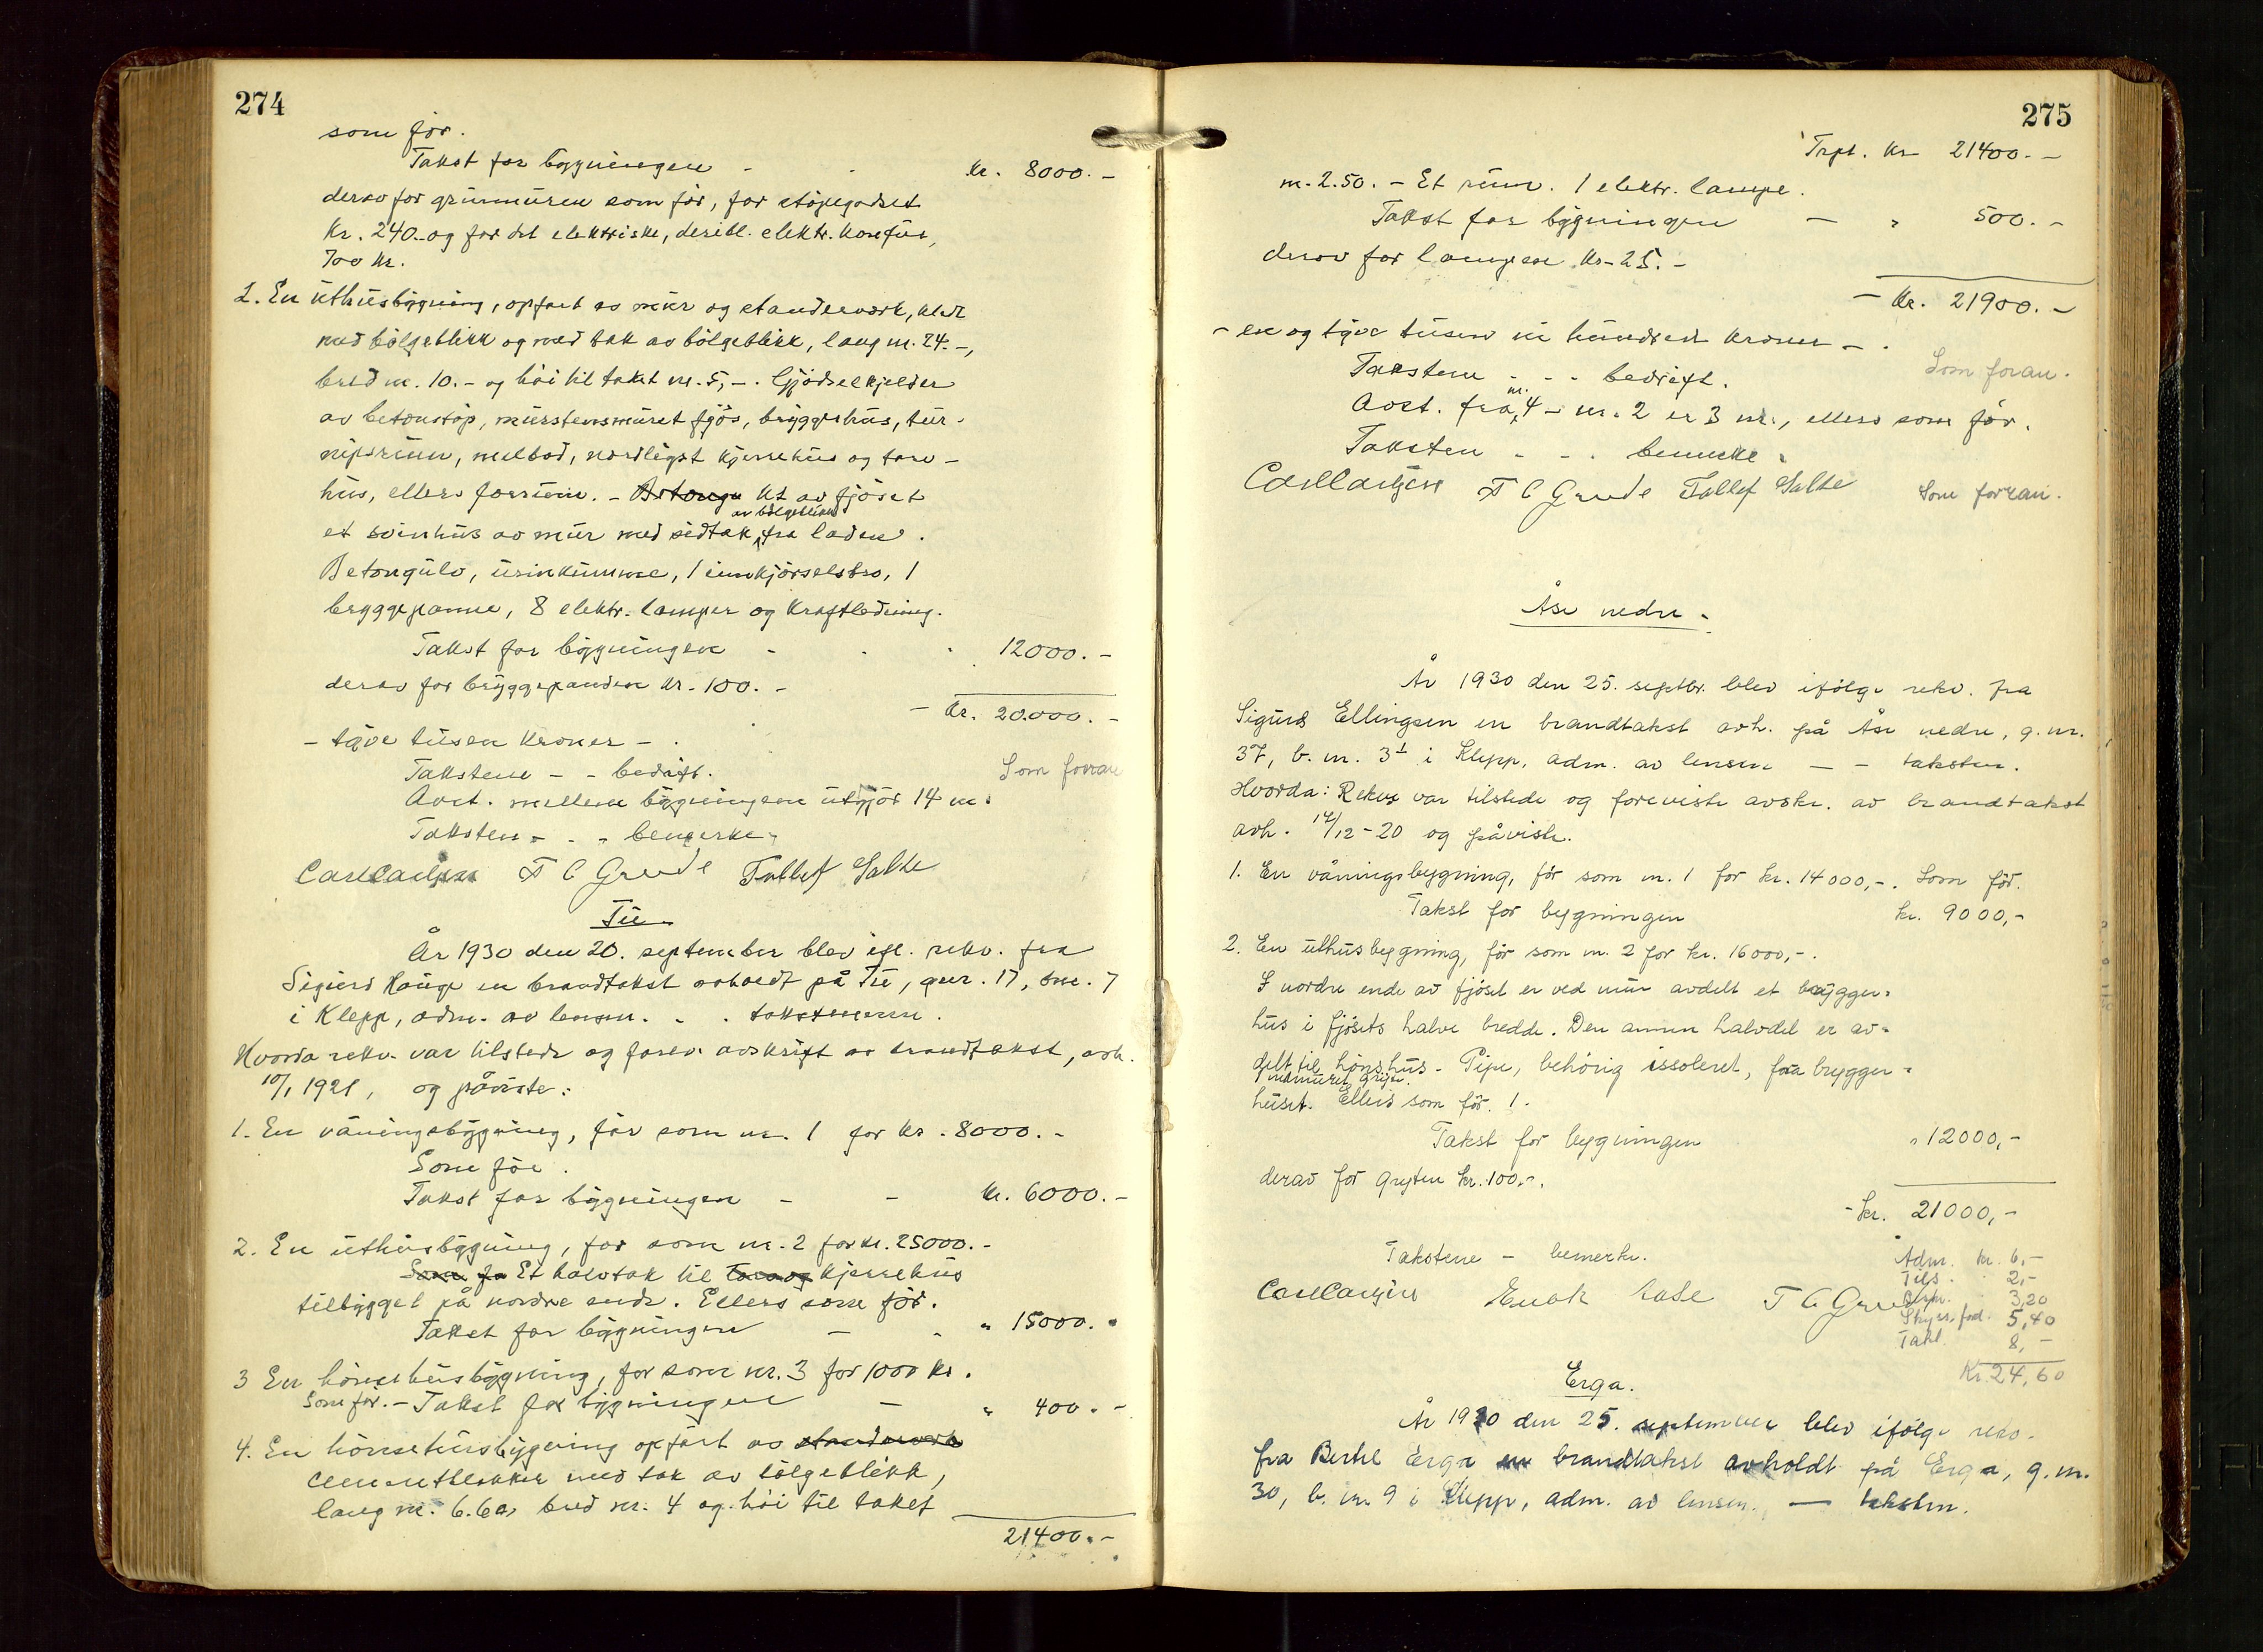 274
som før.
Takst for bygningen - - kr. 8000.-
derav for grunmuren som før, for støpegodset
kr. 240.- og for det elektriske, deribl. elektr. komfur,
700 kr.
2. En uthusbygning, opført av mur og standerverk, klædt
med bølgeblikk og med tak av bølgeblikk, lang m. 24.-,
bred m. 10.- og høi til taket m. 5,-. Gjødselkjelder
av betonstøp, murstensmuret fjøs, bryggehus, tur-
nipsrum, melbod, nordligst kjerrehus og torv-
hus, ellers forrum. - Betongu Ut av fjøset
et svinhus av mur med sidtak av bølgeblikk fra laden.
Betongulv, urinkumme, 1 innkjørselsbro, 1
bryggepanne, 8 elektr. lamper og kraftledning.
Takst for bygningen - - - 12000.-
derav for bryggepanden kr. 100.-
- Kr. 20.000.-
- tyve tusen kroner - .
Takstene - - bedrift. Som forran
Avst. mellem bygningene utgjør 14 m.
Taksten - - - bemerke.
Carl Carlsen T C Grude Tollef Salte
Tu
År 1930 den 20. september blev ifl. rekv. fra
Sigurd Hauge en brandtakst avholdt på Tu, gnr. 17, bnr. 7
i Klepp, adm. av lensm. - - takstmenn.
Hvorda rekv. var tilstede og forev. avskrift av brandtakst, avh.
10/1 1921, og påviste:
1. En våningsbygning, før som nr. 1 for kr. 8000.-
Som før.
Takst for bygningen - - kr. 6000.-
2. En uthusbygning, før som nr. 2 for kr. 25000.-
Som fø Et halvtak til torv og kjerrehus
tilbygget på nordre ende. Ellers som før.
Takst for bygningen - - " 15000.-
3 En hønsehusbygning, før som nr. 3 for 1000 kr.
Som før. - Takst for bygningen - " 400.-
4. En hønsehusbygning opført av standerverk
cementblokker med tak av bølgeblikk,
lang m. 6.60, bred m. 4 og høi til taket
21400.-
275
Trpt. kr 21400.-
m. 2.50. - Et rum. 1 elektr. lampe.
Takst for bygningen - " 500.-
derav for lampen kr. 25.-
- Kr. 21900.-
- en og tyve tusen ni hundrede kroner - .
Takstene - - - bedrift. Som foran.
Avst. fra nr. 4 - nr. 2 er 3 m., ellers som før.
Taksten - - - bemerke.
Carl Carlsen T C Grude Tollef Salte Som forran.
Åse nedre.
År 1930 den 25. septbr. blev ifølge rekv. fra
Sigurd Ellingsen en brandtakst avh. på Åse nedre, g. nr.
37, b. nr. 31 i Klepp, adm. av lensm. - - taksten.
Hvorda: Rekv. var tilstede og foreviste avskr. av brandtakst
avh. 14/12-20 og påviste.
1. En våningsbygning, før som nr. 1 for kr. 14000,-. Som før.
Takst for bygningen kr. 9000,-
2. En uthusbygning, før som nr. 2 for kr. 16000,-.
I nordre ende av fjøset er ved mur avdelt et brygger-
hus i fjøsets halve bredde. Den annen halvdel er av-
delt til hønshus. Pipe, behørig issoleret, fra brygger-
huset. Ellers som før. 1 indmuret gryte.
Takst for bygningen " 12000,-
derav for gryten kr. 100,-.
- kr. 21000,-
Takstene - bemerke.
Carl Carlsen Enok Aase T C Grude
Adm. kr. 6,-
Tils. 2,-
3,20
Skyss, fød. 5,40
Takl. 8,-
Kr. 24,60
Erga.
År 1930 den 25. september blev ifølge rekv.
fra Bertel Erga en brandtakst avholdt på Erga, g. nr.
30, b. nr. 9 i Klepp, adm. av lensm. - taksten.